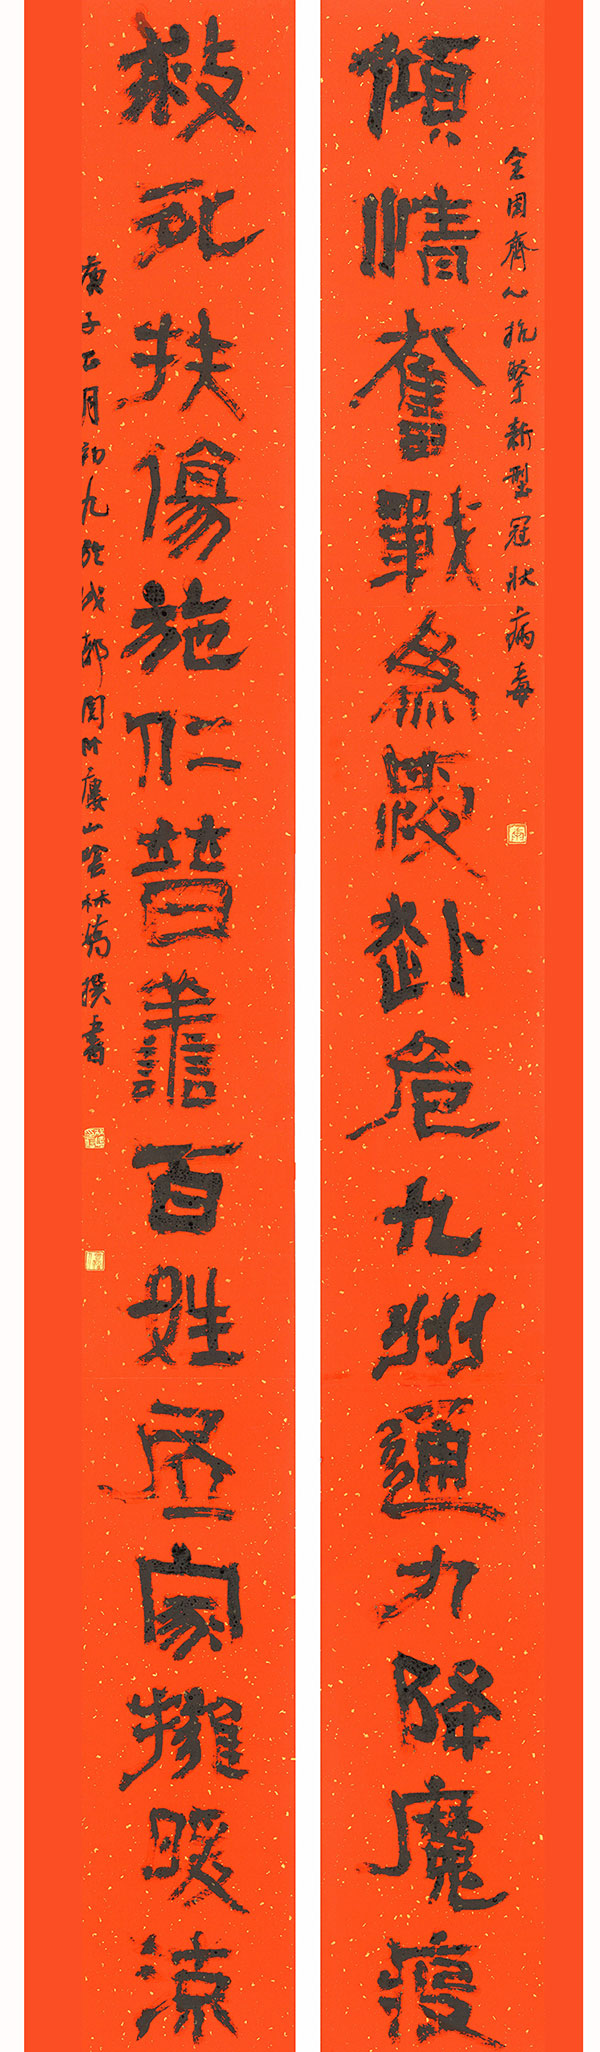 全国齊心抗擊新型冠狀病毒
傾情奮戰為赴危九州通力降魔疫
救死扶傷施仁普善百姓居家擁暖涼
庚子正月初九於成都竹廔山林撰書